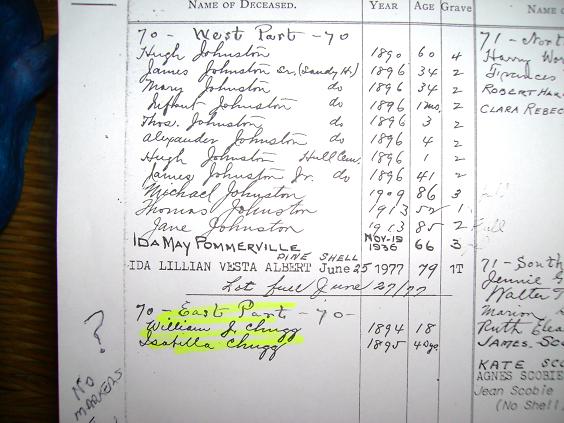 NAME OF DECEASED. YEAR AGE Grave
70 - West Part - 70
Hugh Johnston 1890 60 4
James Johnston Sr. (Sandy H.) 1896 34 2
Mary Johnston do 1896 34 2
Infant Johnston do 1896 1 mo. 2
Thos. Johnston do 1896 3 2
Alexander Johnston do 1896 4 2
Hugh Johnston Hull Cem. 1896 1 2
James Johnston Jr. do 1896 41 2
Michael Johnston 1909 86 3
Thomas Johnston 1913 52 1
Jane Johnston 1913 85 2
IDA MAY POMMERVILLE NOV-19 1936 66 3
PINE SHELL
IDA LILLIAN VESTA ALBERT June 25 1977 79 1T
Lot full June 27/77
70 - East Part - 70-
William J. Chugg 1894 18
Isabella Chugg 1895 4 Dys.
?
NO
MARKERS
NAME
71 - Nort
Harry Wor
Frances
ROBERT HAR
CLARA REBEC
71 - South
Jennie
Walter
Marion
Ruth Elea
JAMES. SCO
KATE SCO
AGNES SCOBIE
Jean Scobie
(No Shell